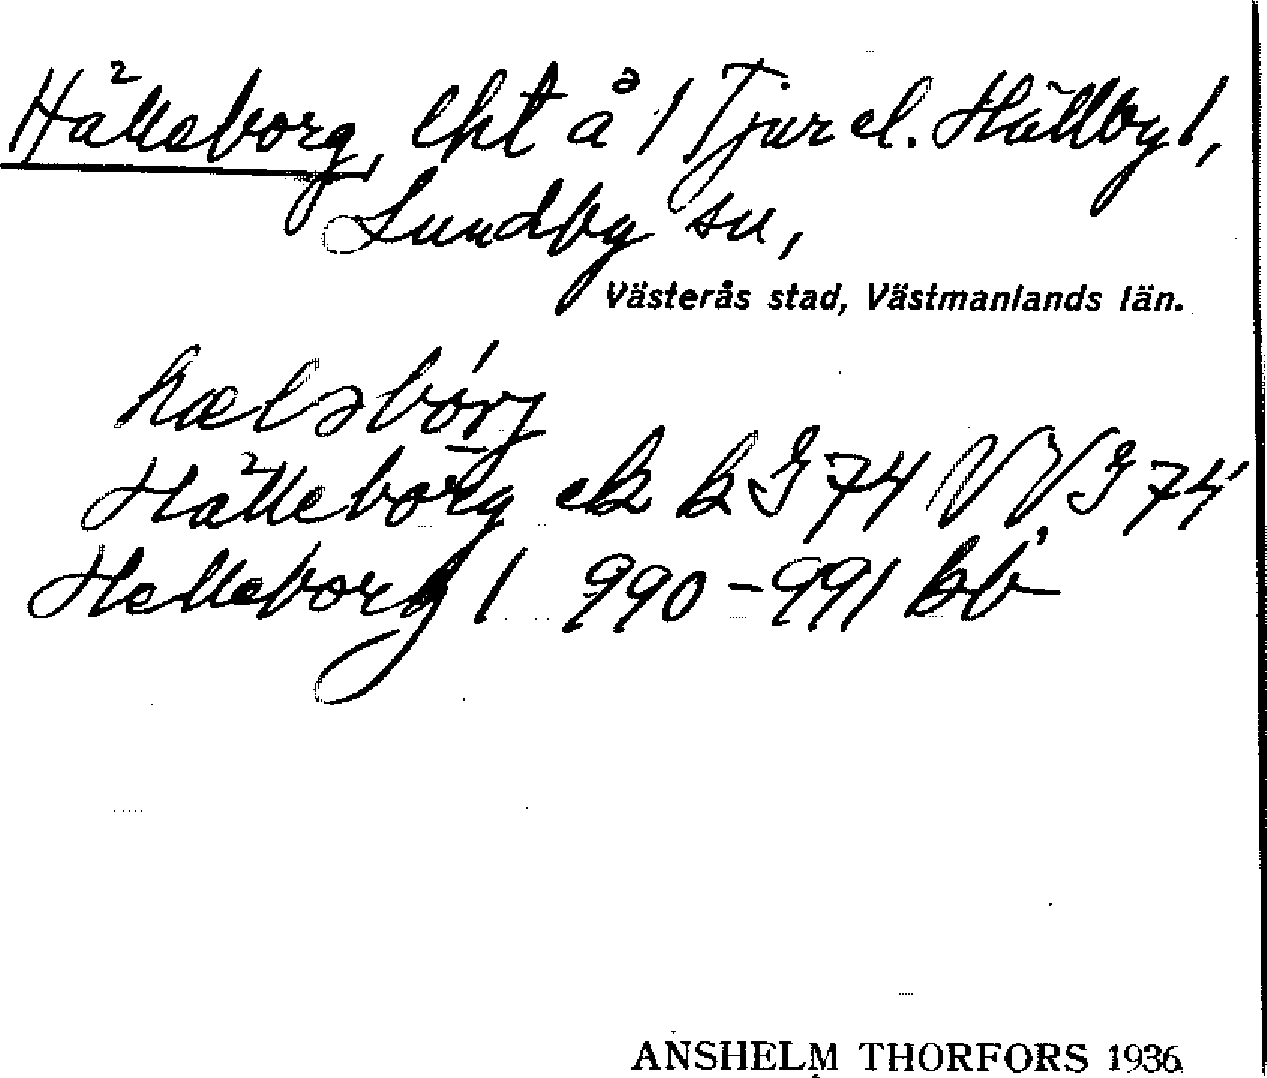 Hälleborg, lht å 1 Tjur el. Hällby 1,
Lundby sn,
Västerås stad, Västmanlands län.
hælsbórj
Hälleborg ek k I 74 VV I 74
Helleborg 1 990-991 kb
ANSHELM THORFORS 1936